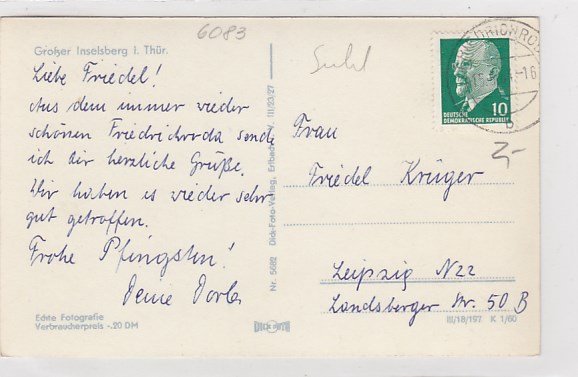 6083
Großer Inselsberg i. Thür.
Suhl
Liebe Friedel!
Aus dem immer wieder
schönen Friedrichroda sende
ich dir herzliche Grüße.
Wir haben es wieder sehr
gut getroffen.
Frohe Pfingsten!
Deine
Echte Fotografie
Verbraucherpreis -.20 DM
Nr. 5682 Dick-Foto-Verlag, Erlbach i. V. III/23/27
DICK FOTO
10
DEUTSCHE
DEMOKRATISCHE REPUBLIK
b
2,-
Frau
Friedel Krüger
Leipzig N22
Landsberger Str. 50 B
III/18/197 K 1/60